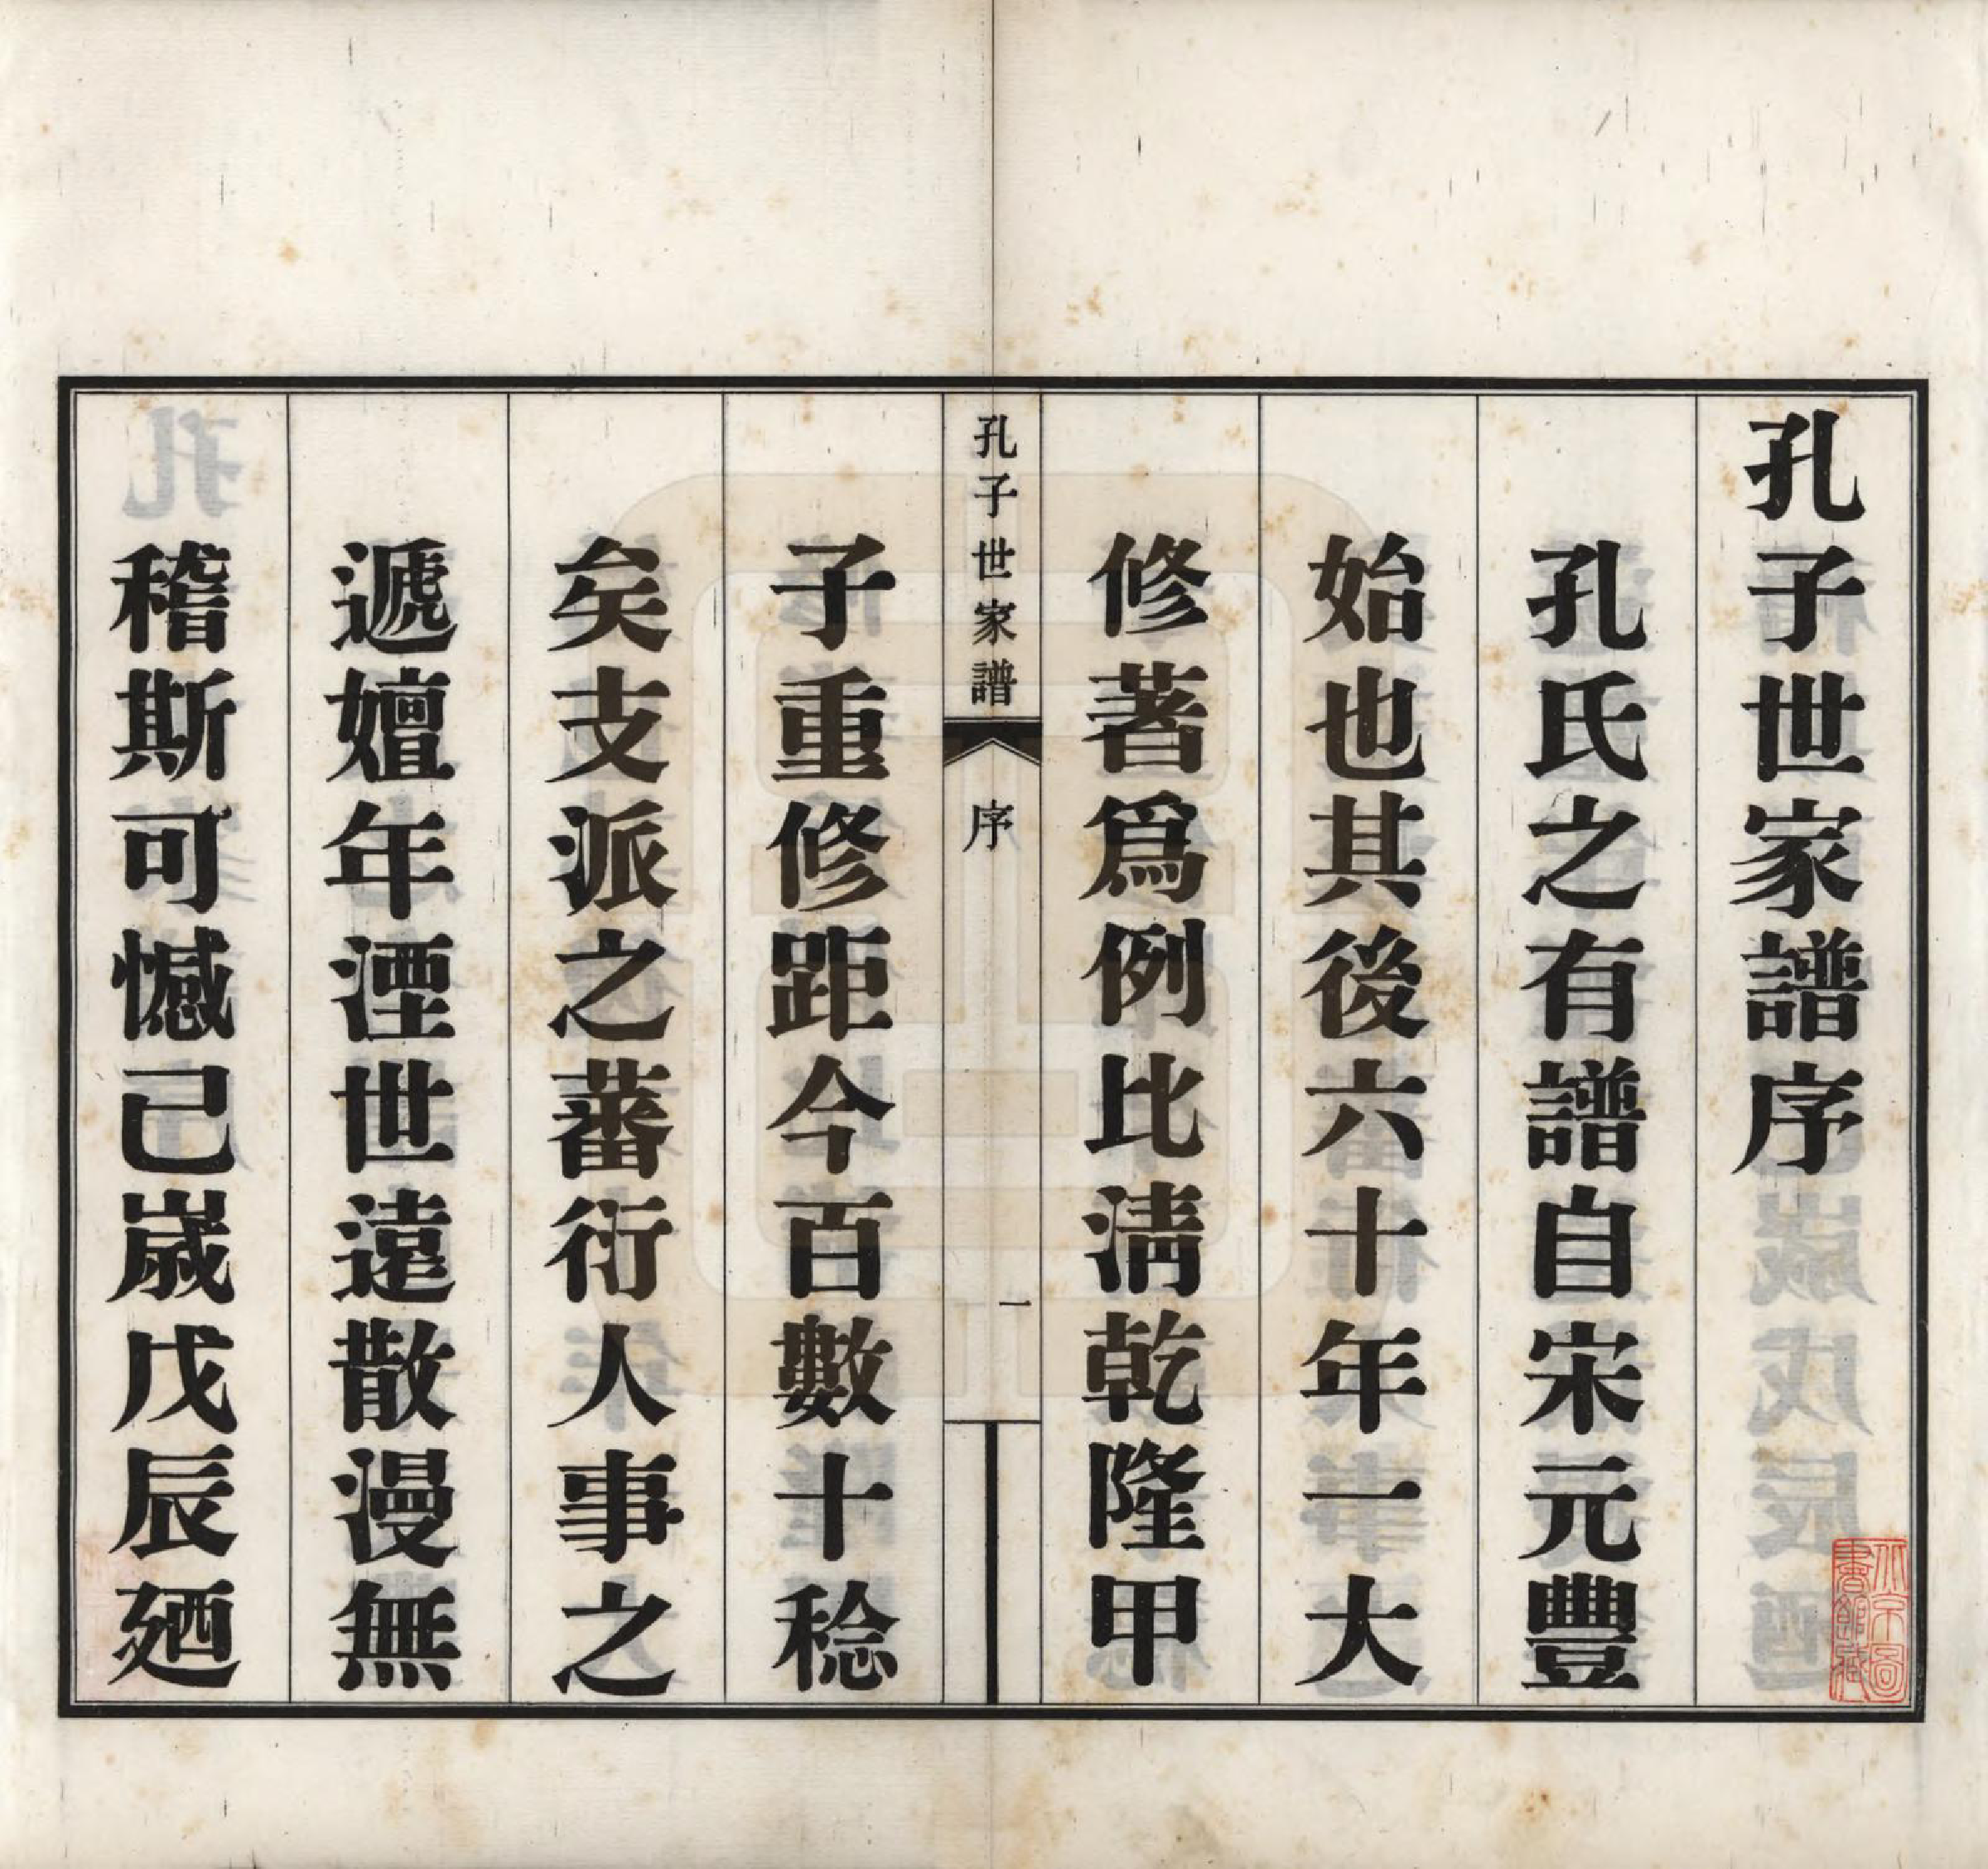 孔子世家譜序
孔氏之有譜自宋元豐
始也其後六十年一大
修著爲例比淸乾隆甲
孔子世家譜
序
一
子重修距今百數十稔
矣支派之蕃衍人事之
遞嬗年湮世遠散漫無
稽斯可憾己歲戊辰廼